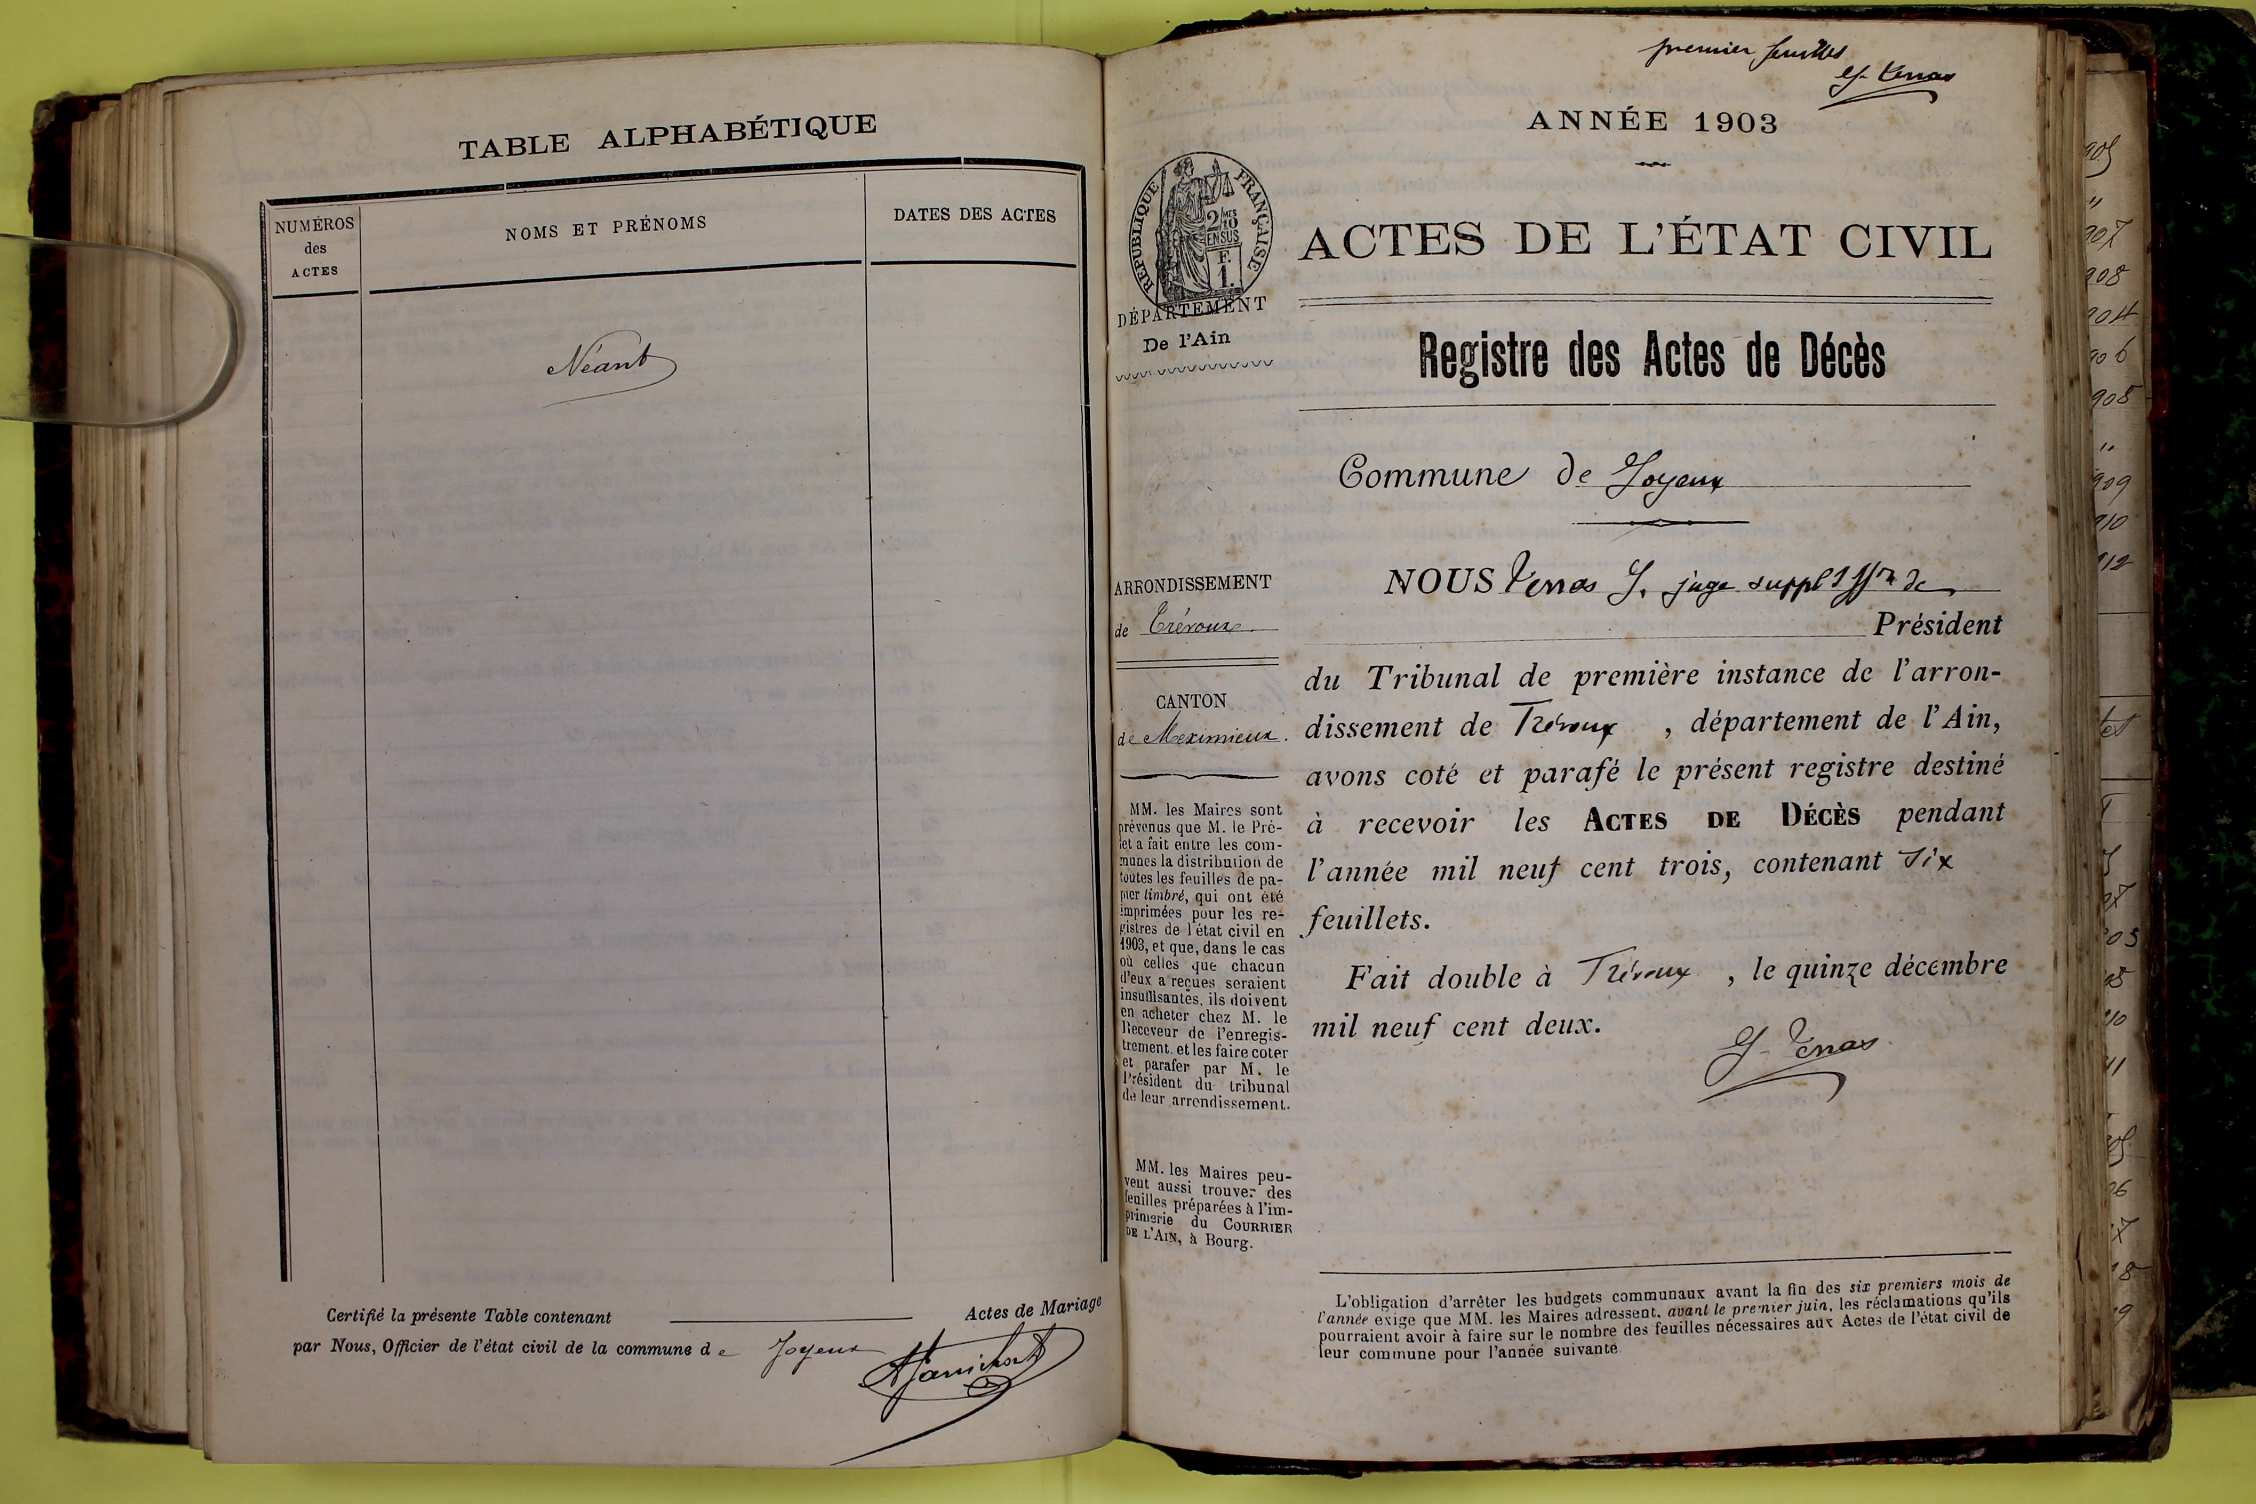 TABLE ALPHABÉTIQUE
NUMÉROS
des
ACTES
NOMS ET PRÉNOMS
DATES DES ACTES
Néant
Certifié la présente Table contenant
Actes de Mariage
par Nous, Officier de l'état civil de la commune de Joyeux
premier feuillet
ANNÉE 1903
RÉPUBLIQUE FRANÇAISE
2/10 MES
EN SUS
F.
1.
DÉPARTEMENT
De l'Ain
ACTES DE L'ÉTAT CIVIL
Registre des Actes de Décès
Commune de Joyeux
ARRONDISSEMENT
de Trévoux
CANTON
de Meximieux.
MM. les Maires sont
prévenus que M. le Pré-
fet a fait entre les com-
munes la distribution de
toutes les feuilles de pa-
pier timbré, qui ont été
imprimées pour les re-
gistres de l'état civil en
1903, et que, dans le cas
où celles que chacun
d'eux a reçues seraient
insuffisantes, ils doivent
en acheter chez M. le
Receveur de l'enregis-
trement, et les faire coter
et parafer par M. le
Président du tribunal
de leur arrondissement.
MM. les Maires peu-
vent aussi trouver des
feuilles préparées à l'im-
primerie du COURRIER
DE L'AIN, à Bourg.
NOUS J. juge suppl de
Président
du Tribunal de première instance de l'arron-
dissement de Trévoux , département de l'Ain,
avons coté et parafé le présent registre destiné
à recevoir les ACTES DE DÉCÈS pendant
l'année mil neuf cent trois, contenant six
feuillets.
Fait double à Trévoux , le quinze décembre
mil neuf cent deux.
L'obligation d'arrêter les budgets communaux avant la fin des six premiers mois de
l'année exige que MM. les Maires adressent, avant le premier juin, les réclamations qu'ils
pourraient avoir à faire sur le nombre des feuilles nécessaires aux Actes de l'état civil de
leur commune pour l'année suivante